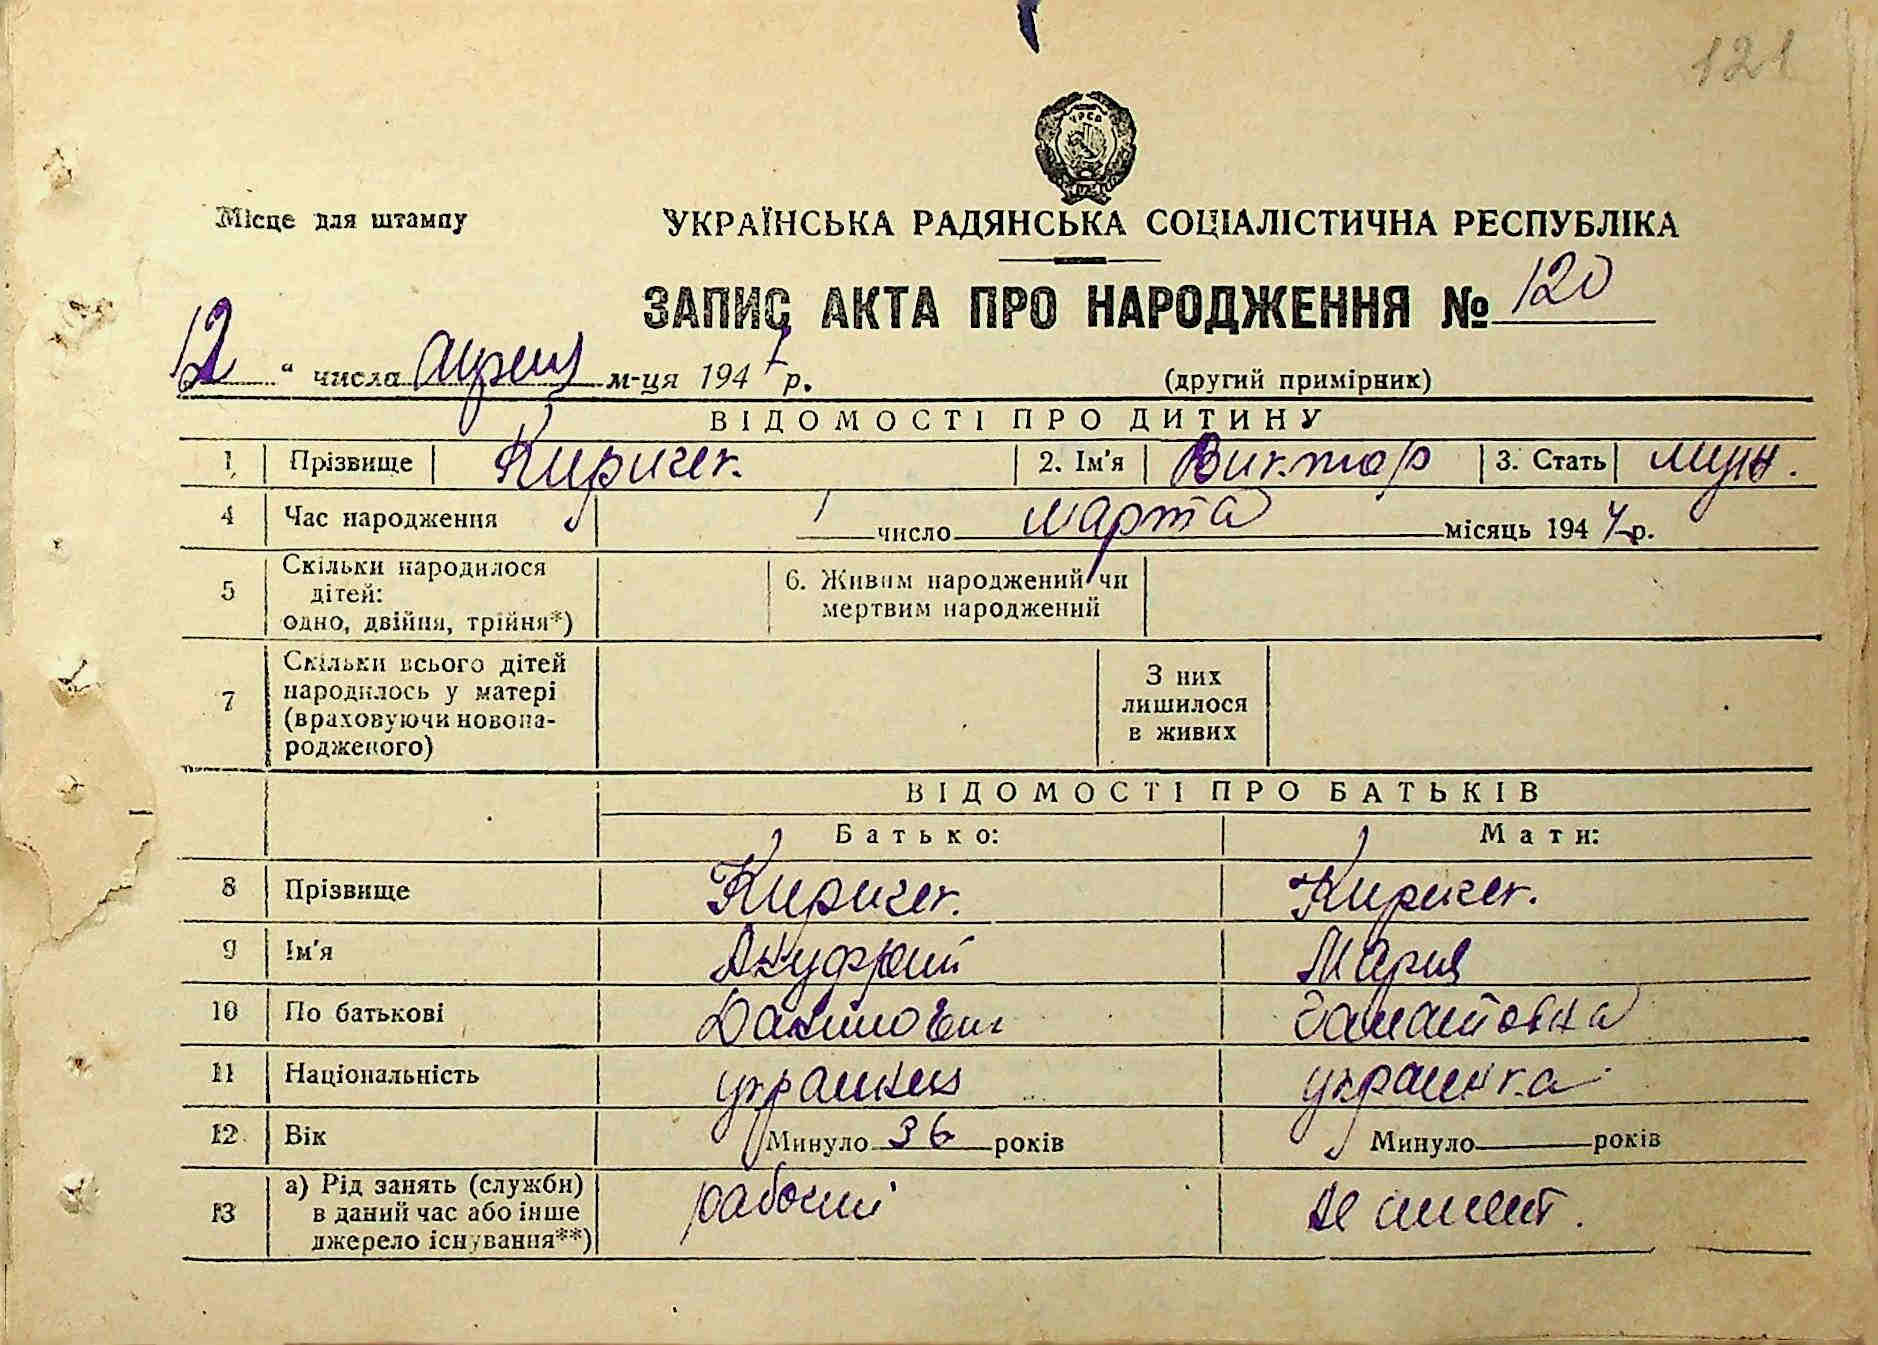 121
УРСР
Місце для штампу
УКРАЇНСЬКА РАДЯНСЬКА СОЦІАЛІСТИЧНА РЕСПУБЛІКА
ЗАПИС АКТА ПРО НАРОДЖЕННЯ № 120
12 " числа апреля м-ця 1947 р.
(другий примірник)
ВІДОМОСТІ ПРО ДИТИНУ
1 Прізвище Киричек. 2. Ім'я Виктор 3. Стать муж.
4 Час народження 1 число марта місяць 1947 р.
5 Скільки народилося дітей: одно, двійня, трійня*) 6. Живим народжений чи мертвим народжений
7 Скільки всього дітей народилось у матері (враховуючи новонародженого) З них лишилося в живих
ВІДОМОСТІ ПРО БАТЬКІВ
Батько: Мати:
8 Прізвище Киричек. Киричек.
9 Ім'я Ануфрий Мария
10 По батькові
11 Національність украинец украинка
12 Вік Минуло 36 років Минуло років
13 а) Рід занять (служби) в даний час або інше джерело існування**) рабочий